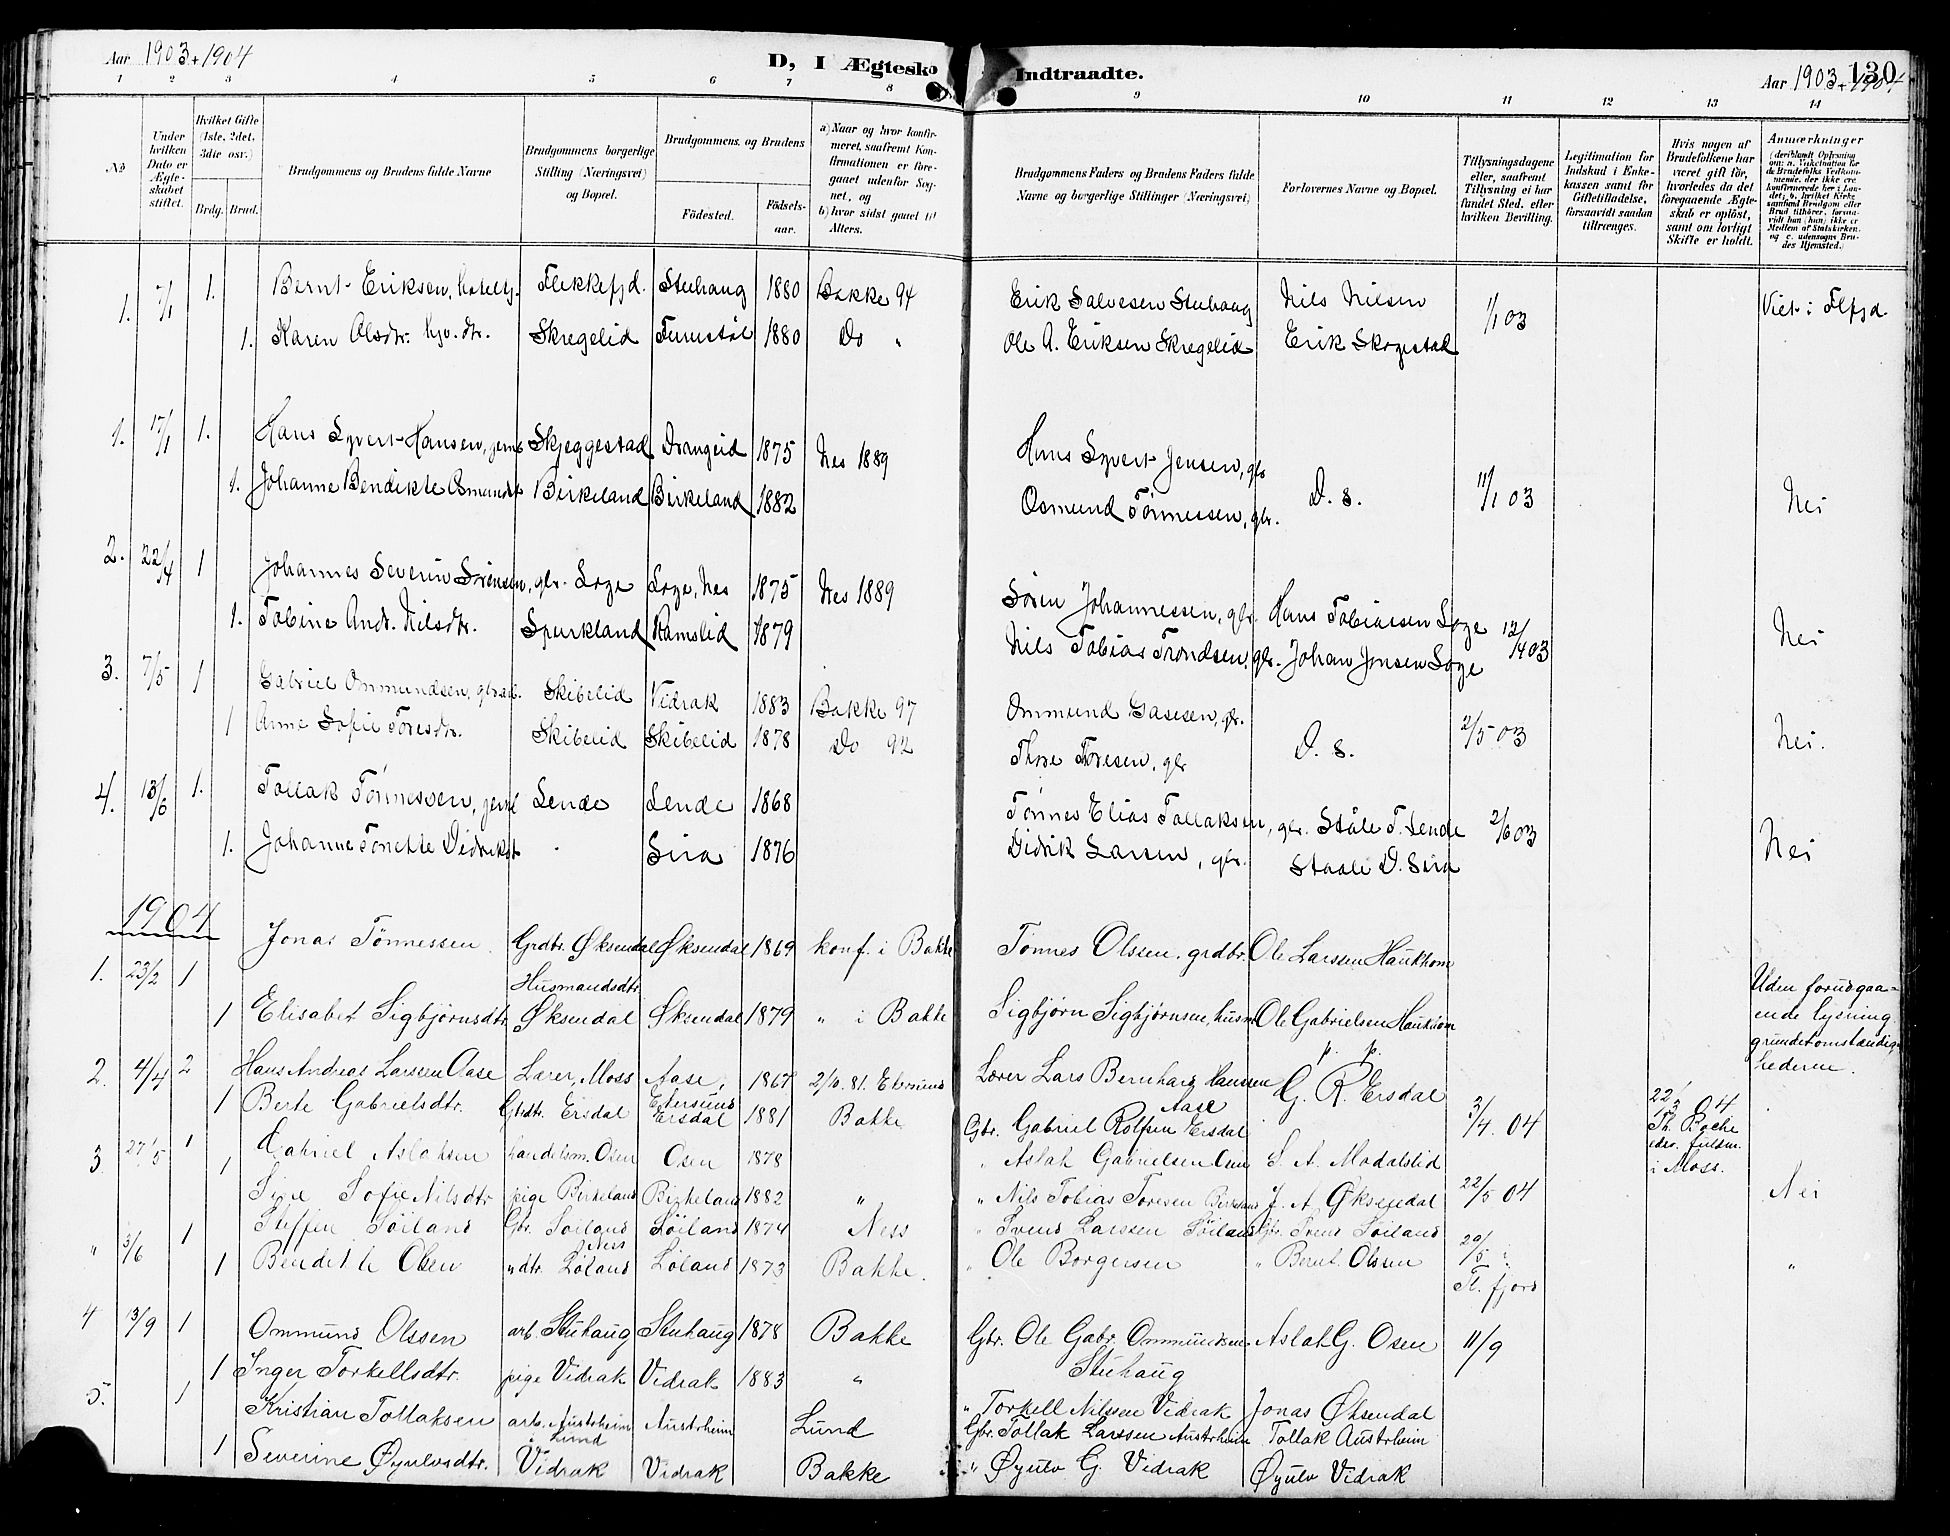 Aar 1903 + 1904
D, I Ægtesko Indtraadte.
Aar 1903 + 1904
130
1 2 3 4 5 6 7 8 9 10 11 12 13 14
No
Under hvilken Dato er Ægteskabet stiftet.
Hvilket Gifte (1ste, 2det, 3die osv.)
Brdg. Brud.
Brudgommens og Brudens fulde Navne
Brudgommens borgerlige Stilling (Næringsvei) og Bopæl.
Brudgommens og Brudens
Födested.
Födselsaar.
a) Naar og hvor konfirmeret, saafremt Konfirmationen er foregaaet udenfor Sognet, og
b) hvor sidst gaaet til Alters.
Brudgommens Faders og Brudens Faders fulde Navne og borgerlige Stillinger (Næringsvei)
Forlovernes Navne og Bopæl.
Tillysningsdagene eller, saafremt Tillysning ei har fundet Sted, efter hvilken Bevilling.
Legitimation for Indskud i Enkekassen samt for Giftetilladelse, forsaavidt saadan tiltrænges.
Hvis nogen af Brudefolkene har været gift før, hvorledes da det foregaaende Ægteskab er oplöst, samt om lovligt Skifte er holdt.
Anmærkninger
1. 7/1 1. Bernt Eriksen, Flekkefjd. Stuhaug 1880 Bakke 94 Erik Salvesen Stuhaug Nils Nilsen 1/1 03 Viet i Flfjd.
1. Karen Olsdtr. Skregelid Tunustöl 1880 Do " Ole A. Eriksen Skregelid Erik Skogestad
1. 17/1 1. Hans Syvert Hansen, Skjeggestad Drangeid 1875 Nes 1889 Hans Syvert Jensen, gbr
1. Johanne Bendikte Osmundst Birkeland Birkeland 1882 Osmund Tönnessen, gbr. D. s. 11/1 03 Nei
2. 22/4 1 Johannes Severin Sörensen, gbr. Loge Loge, Nes 1875 Nes 1889 Sören Johannessen, gbr. Hans Tobiassen Loge 12/4 03
1. Tobine Andr. Nilsdtr. Spurkland Ramslid 1879 Nils Tobias Trondsen, gbr. Johan Jensen Loge Nei
3. 7/5 1 Gabriel Ommundsen, Skibelid Vidrak 1883 Bakke 97 Ommund Gasesen, gbr. 2/5 03
1 Anne Sofie Toresdtr. Skibelid Skibelid 1878 Do 92 Thore Toresen, gbr D. s. Nei.
4. 13/6 1. Tollak Tönnessen, Lende Lende 1868 Tönnes Elias Tollaksen, gbr. Ståle T. Lende 2/6 03
1. Johanne Tonette Didrikst Sira 1876 Didrik Larsen, gbr. Staale D. Sira Nei
1904
1. 23/2 1 Jonas Tönnessen Grdbr. Øksendal Øksendal 1869 konf. i Bakke Tönnes Olssen, grdbr. Ole Larssen Haukhom
Husmandsdtr.
1 Elisabet Sigbjørnsdtr Øksendal Øksendal 1879 " i Bakke Sigbjørn Sigbjørnsen, husm. Ole Gabrielsen Haukhom
Uden forudgaaende lysning grundet omstændighederne.
2. 4/4 2 Hans Andreas Larssen Aase Lærer, Moss Aase, Ekersund 1867 2/10. 81. Ekersund Lærer Lars Bernhard Hanssen Aase p. p. G. R. Ersdal
1 Berte Gabrielsdtr. Gbrdtr. Ersdal Ersdal 1881 Bakke Gbr. Gabriel Rolfsen Ersdal 3/4. 04
22/3 04
i Moss.
3 27/5 1 Gabriel Aslaksen handelsm. Osen Osen 1878 " Aslak Gabrielsen Osen S. A. Modalslid
1 Sofie Nilsdtr pige Birkeland Birkeland 1882 " " Nils Tobias Toresen Birkeland J. A. Øksendal 22/5 04 Nei
" 3/6 1 Steffen Söiland Gbr. Söiland Ness Söiland 1874 Ness " Svend Larssen Söiland Gbr. Svend Söiland 29/5 i
1 Bendikte Olsen " dtr. Löland Löland 1873 Bakke. " Ole Borgersen " Bernt Olssen Fl. fjord "
4 13/9 1 Ommund Olssen arb. Stuhaug Stuhaug 1878 Bakke Gbr. Ole Gabr. Ommundsen Stuhaug Aslak G. Osen 11/9
1 Inger Torkellsdtr. pige Vidrak Vidrak 1883 " " Torkell Nilssen Vidrak Jonas Øksendal
5. 1 Kristian Tollaksen arb. Austrheim i Lund Austrheim Lund Gbr. Tollak Larssen Austrheim Tollak Austrheim
1 Severine Øyulvsdtr. Vidrak Vidrak Bakke " Øyulv G. Vidrak Øyulv Vidrak